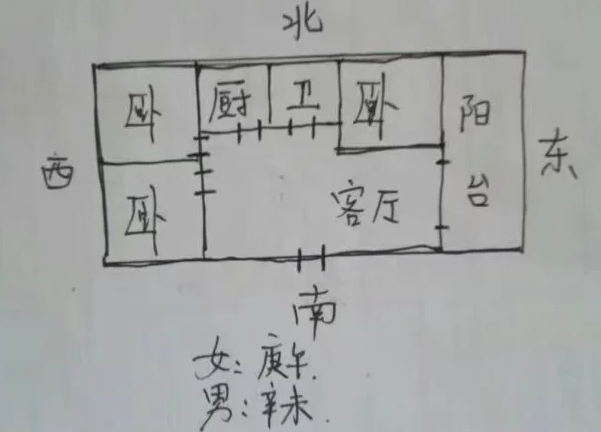 北
卧 厨 卫 卧 阳
西 东
卧 客厅 台
南
女：庚午．
男：辛未．